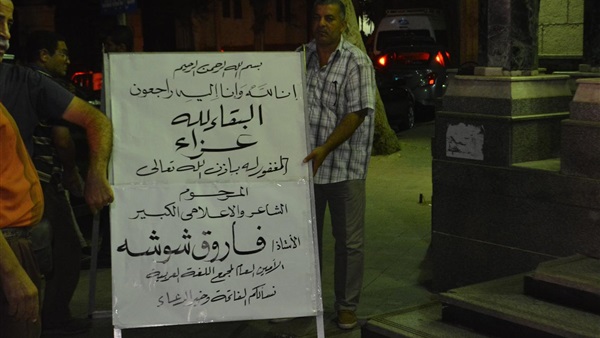 بسم الله الرحمن الرحيم
إنا لله وإنا إليه راجعون
البقاء لله
عزاء
المغفور له بإذن الله تعالى
المرحوم
الشاعر والإعلامى الكبير
الأستاذ/ فاروق شوشه
الأمين العام لمجمع اللغة العربية
نسألكم الفاتحة وخير الدعاء